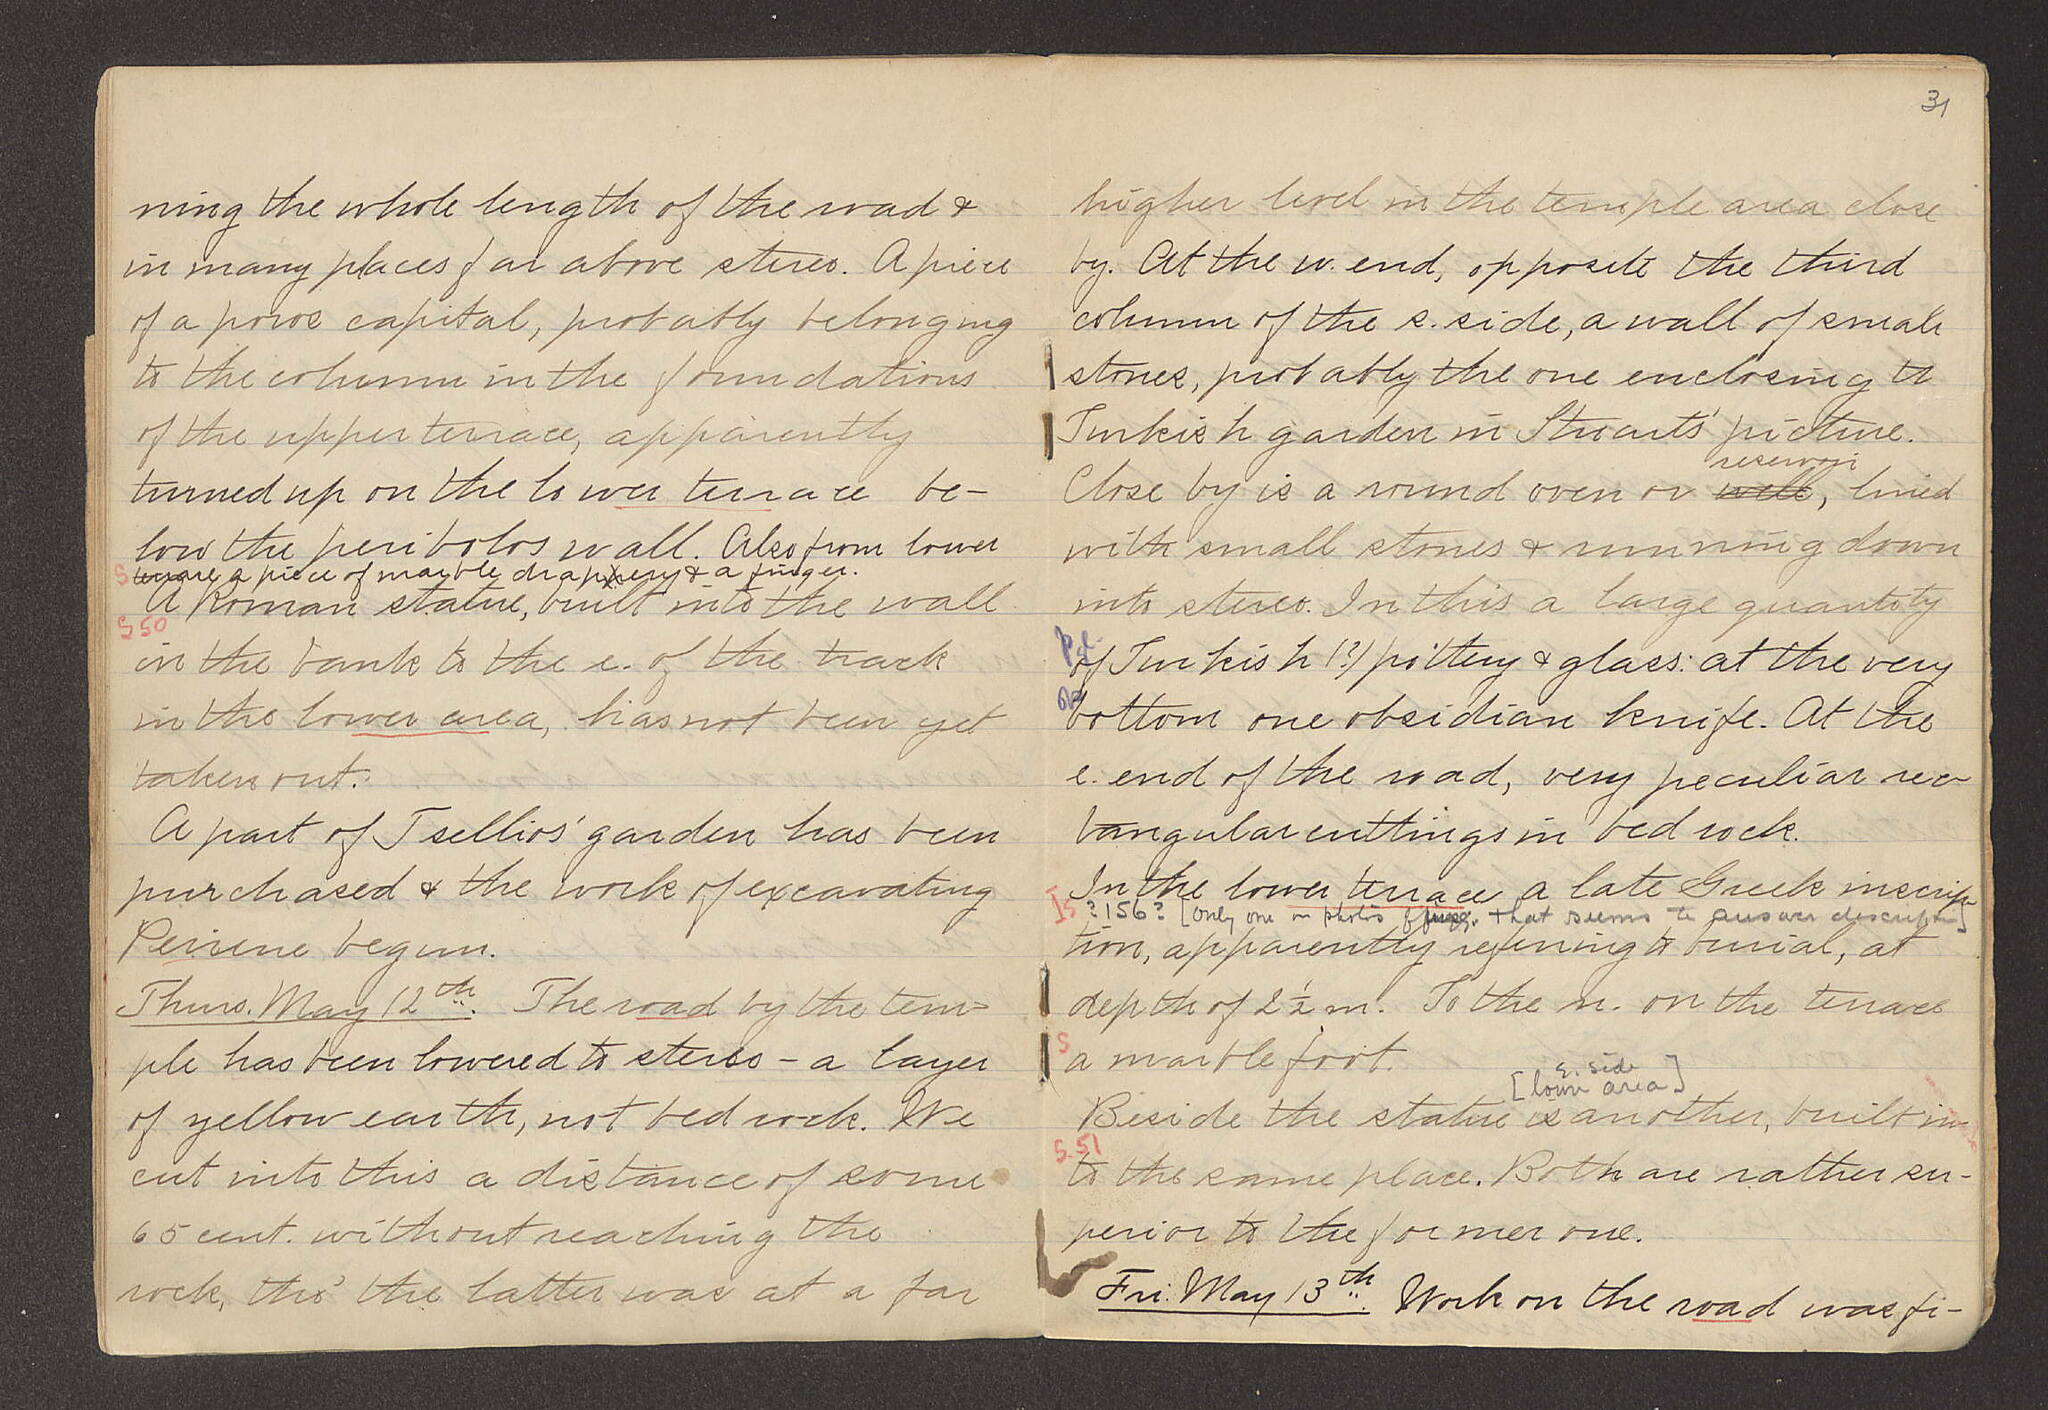 ning the whole length of the road &
in many places far above stereo. A piece
of a poros capital, probably belonging
to the column in the foundations
of the upper terrace, apparently
turned up on the lower terrace be-
low the peribolos wall. Also from lower
S terrace a piece of marble drapery & a finger.
A Roman statue, built into the wall
S 50
in the bank to the e. of the track
in the lower area, has not been yet
taken out.
A part of Tsellios' garden has been
purchased & the work of excavating
Peirene begun.
Thurs. May 12th. The road by the tem-
ple has been lowered to stereo - a layer
of yellow earth, not bed rock. We
cut into this a distance of some
65 cent. without reaching the
rock, tho' the latter was at a far
31
higher level in the temple area close
by. At the w. end, opposite the third
column of the s. side, a wall of small
stones, probably the one enclosing the
Turkish garden in Stuart's picture.
reservoir
Close by is a round oven or well, lined
with small stones & running down
into stereo. In this a large quantity
of Turkish (?) pottery & glass: at the very
bottom one obsidian knife. At the
e. end of the road, very peculiar rec-
tangular cuttings in bed rock.
In the lower terrace a late Greek inscrip-
Is ?156? [Only one in photos & that seems to answer description]
tion, apparently referring to burial, at
depth of 2 1/2 m. To the n. on the terrace
S a marble foot.
e. side
[lower area]
Beside the statue is another, built in-
S. 51
to the same place. Both are rather su-
perior to the former one.
Fri. May 13th. Work on the road was fi-